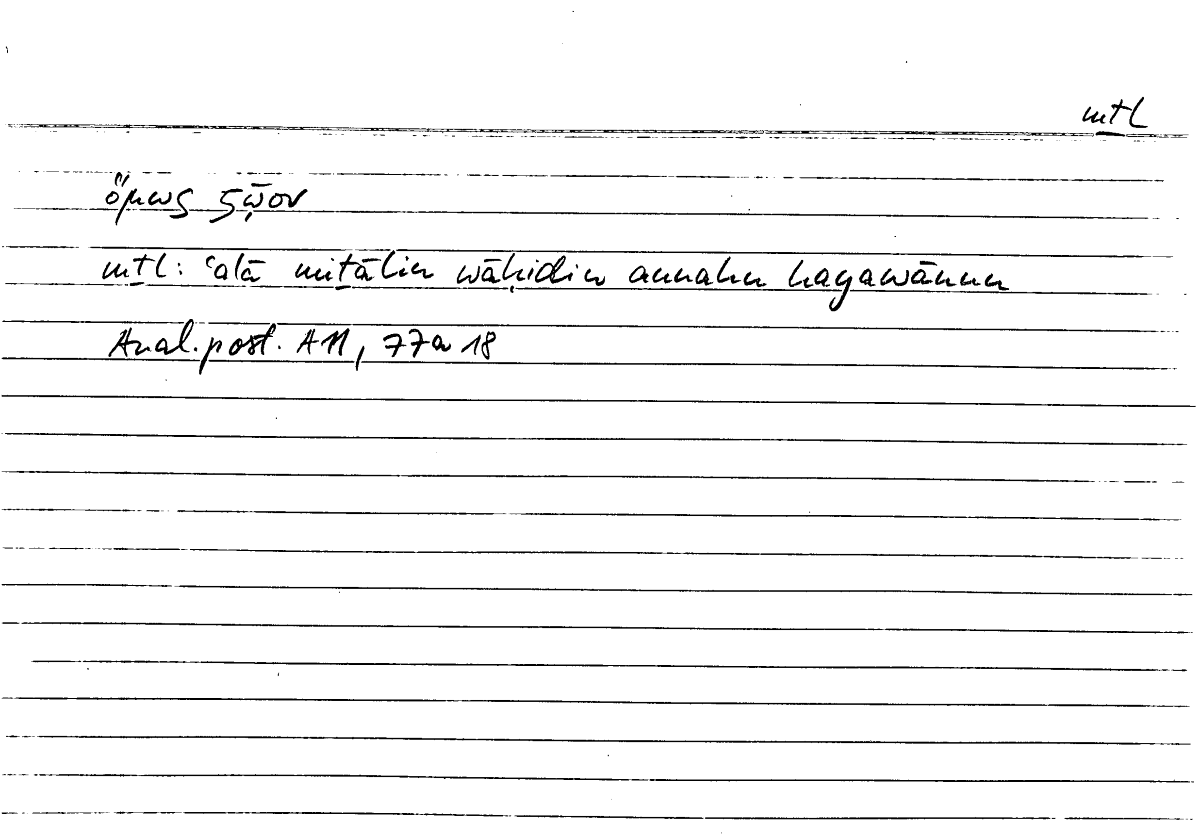 mṯl
ὅμως ζῷον
mṯl: ʿalā miṯālin wāḥidin annahu hayawānun
Anal. post. A11, 77a 18